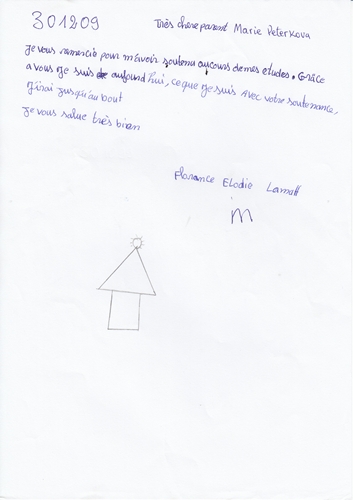 301209
Très chere parent Marie Peterkova
Je vous remercie pour m'avoir soutenu aucours de mes etudes. Grâce
a vous je suis aujourd'hui, ce que je suis Avec votre soutenance,
j'irai jusqu'au bout
Je vous salue très bien
Florance Elodie Lamatt